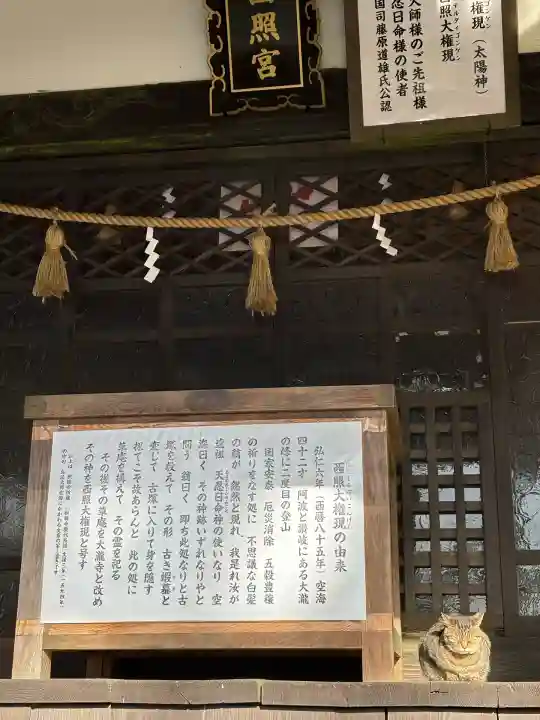 西照宮
権現（太陽神）
西照大権現
大師様のご先祖様
忍日命様の使者
国司藤原道雄氏公認
西照大権現の由来
弘仁六年（西暦八十五年）空海
四十二才 阿波と讃岐にある大瀧
の峰に二度目の登山
国家安泰 厄災消除 五穀豊穣
の祈りをなす処に 不思議な白髪
の翁が 忽然と現れ 我是れ汝が
遠祖 天忍日命神の使いなり 空
海曰く その神跡いずれなりやと
問う 翁曰く 即ち此処なりと古
塚を教えて その形 古き蝦蟇と
変じて 古塚に入りて身を隠す
探してこそ故あらんと 此の処に
草庵を構えて その霊を祀る
その後その草庵を大瀧寺と改め
その神を西照大権現と号す